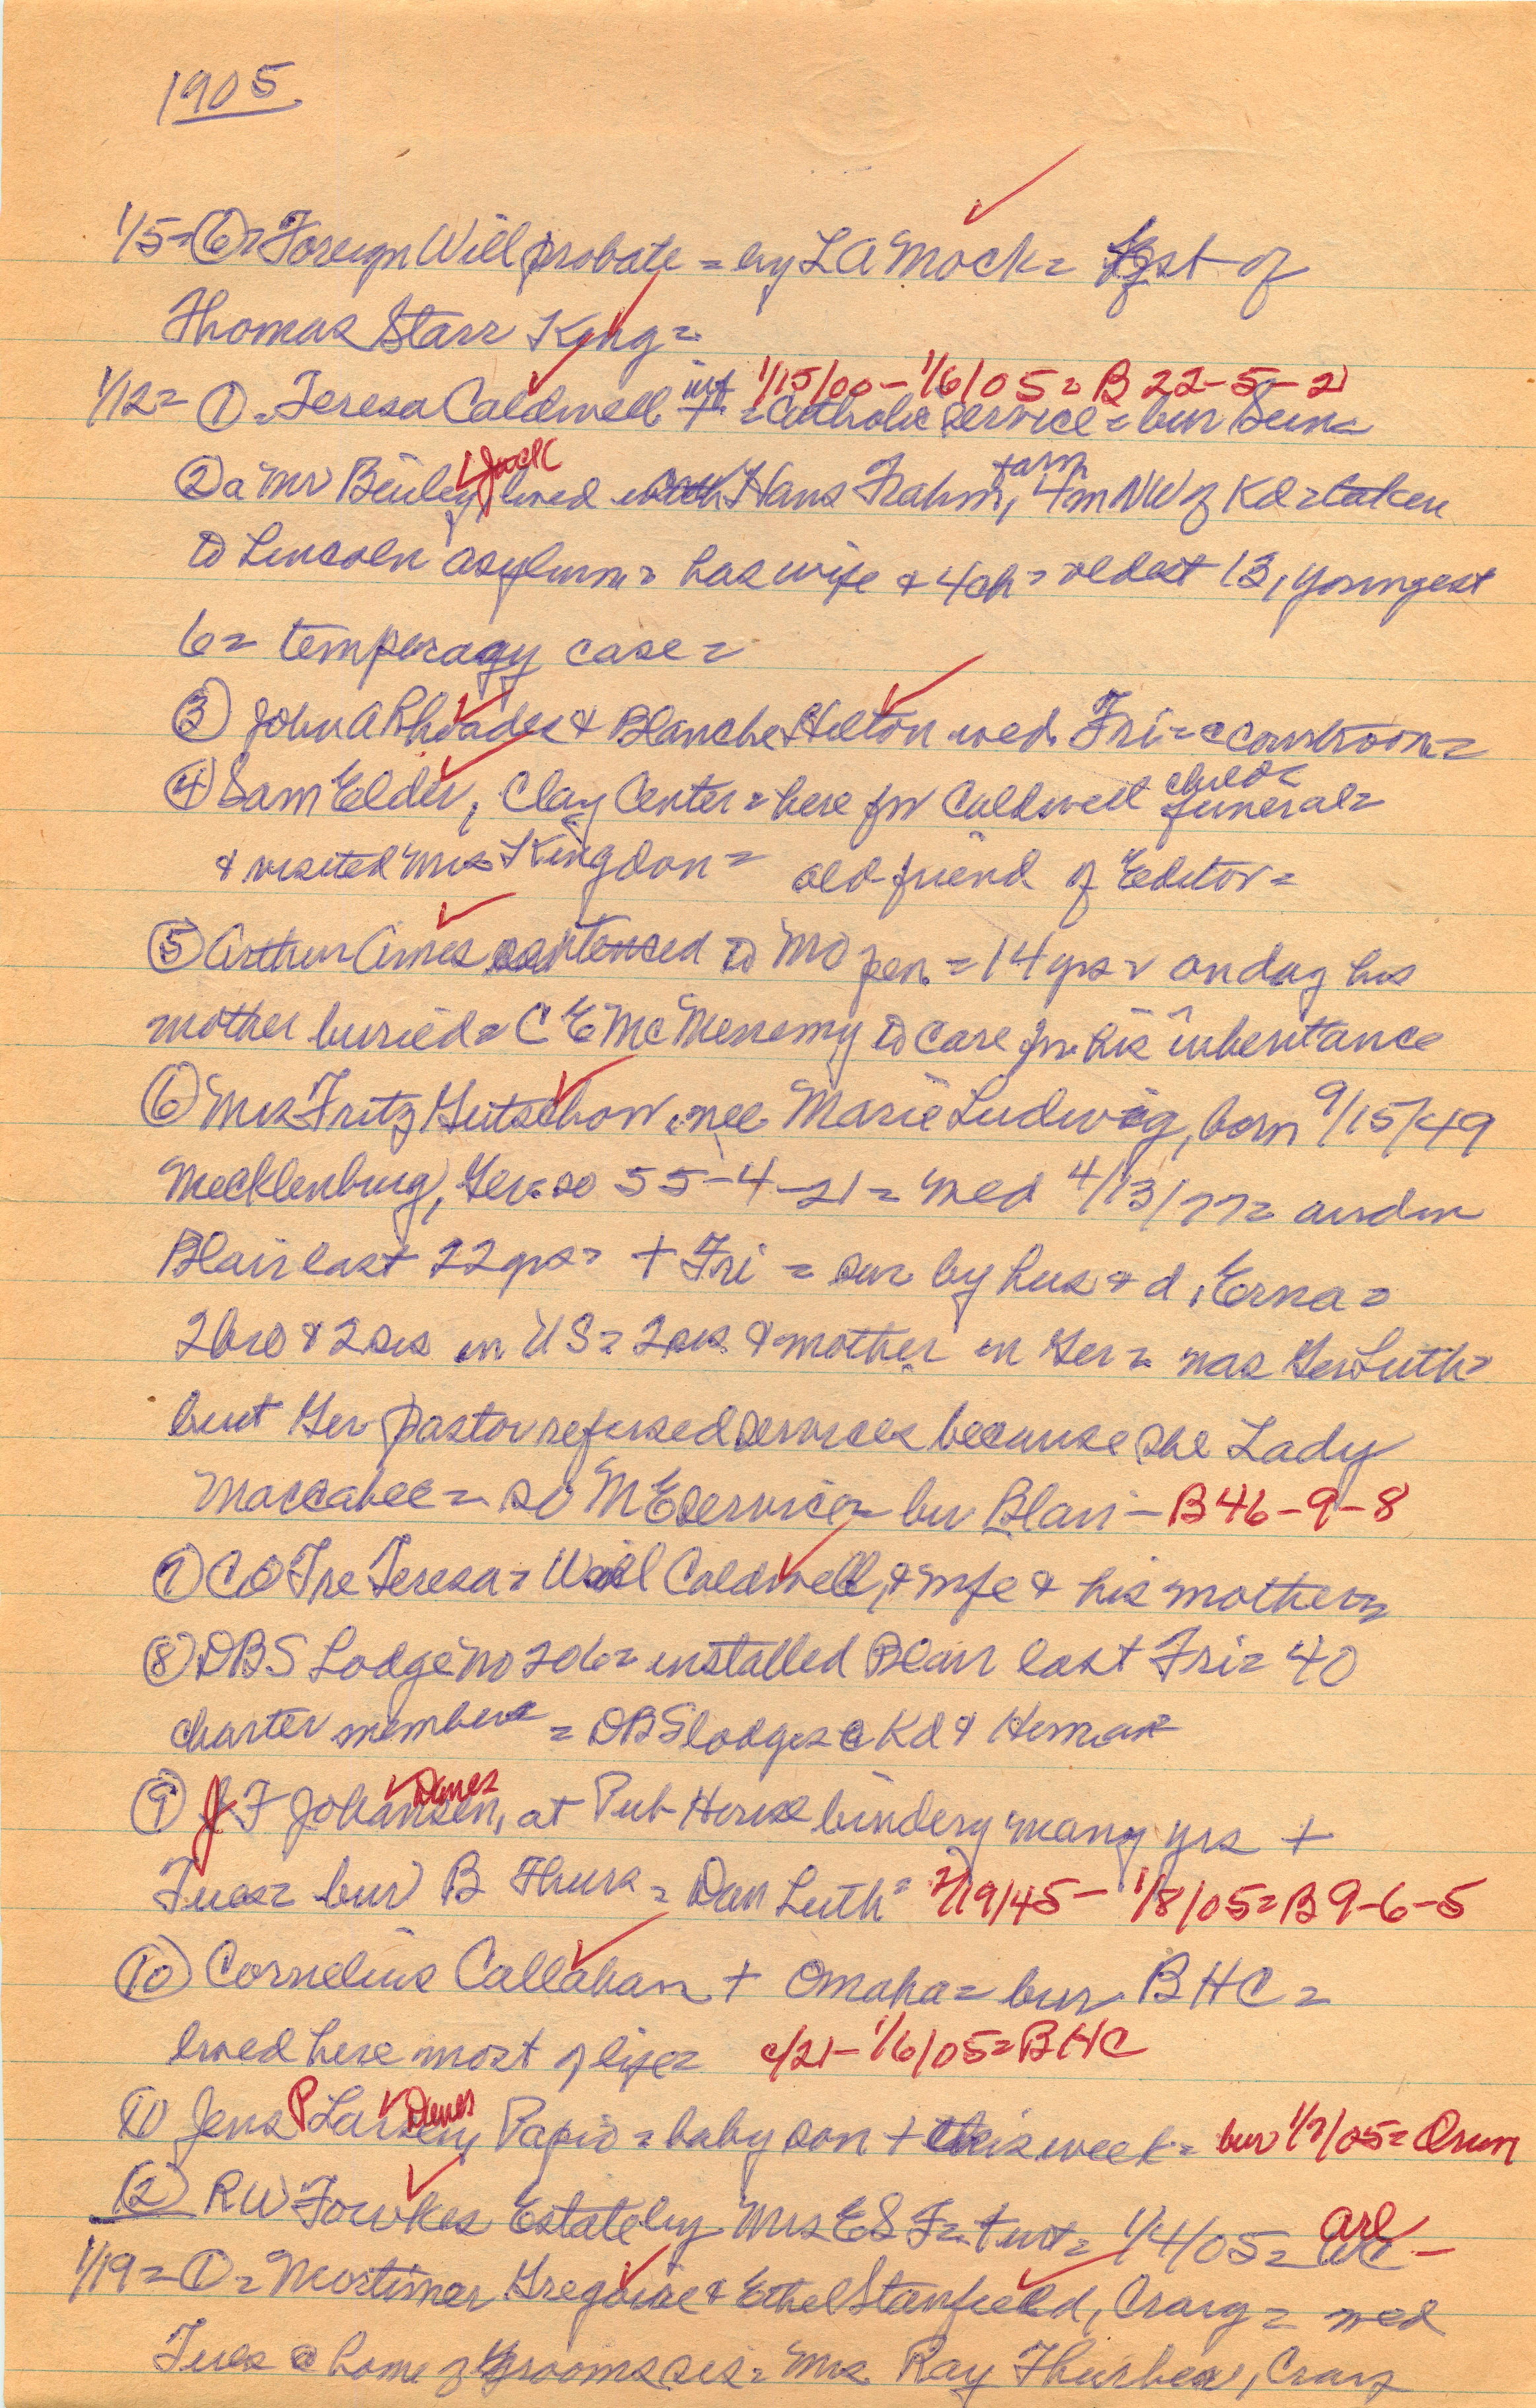 1905
1/5=⑥=Foreign Will probate = by L A Mock = Est of
Thomas Starr King=
1/12= ①=Teresa Caldwell inf + 1/15/00-1/6/05= B 22-5-2
=Catholic service= bur Sun=
② a Mr Beuley Jack lived with Hans Frahm farm, 4m NW of Kd=taken
to Lincoln asylum= has wife & 4ch= oldest 13, youngest
6= temporary case=
③ John A Rhoades & Blanche Hilton wed. Fri= courtroom=
④ Sam Elder, Clay Center= here for Caldwell childs funeral=
& visited Mrs Kingdon= old friend of Editor=
⑤ Arthur Ames sentenced to MO pen.=14 yrs= on day his
mother buried= C E McMenemy to care for his inheritance
⑥ Mrs Fritz Gutschow, nee Marie Ludwig, born 9/15/49
Mecklenburg, Ger= so 55-4-21= wed 4/13/77= and in
Blair last 22 yrs= + Fri = sur by hus & d, Erna=
2 bro & 2 sis in US= 2 sis & mother in Ger= was Ger Luth=
but Ger pastor refused services because she Lady
Maccabee= so ME service= bur Blair - B46-9-8
⑦ CO The Teresa= Will Caldwell, & wife & his mother=
⑧ DBS Lodge no 206= installed Blair last Fri= 40
charter members = DBS lodges @ Kd & Herman
⑨ J F Johansen, Danes at Pub House bindery many yrs +
Tues= bur B Thurs = Dan Luth= 2/19/45- 1/8/05= B 9-6-5
⑩ Cornelius Callahan + Omaha= bur BHC=
lived here most of life= c/21-1/6/05=BHC
⑪ Jens P Larsen, Danes Papio= baby son + this week= bur 1/7/05= Orum
⑫ R W Fowkes Estate by Mrs E S F= + int= 1/4/05= Arl -
1/19=①= Mortimer Gregoire & Ethel Stanfield, Craig= wed
Tues @ home of grooms sis= Mrs. Ray Thurber, Craig